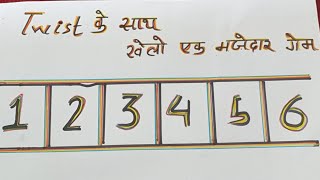 Twist के साथ
खेलो एक मजेदार गेम
1 2 3 4 5 6